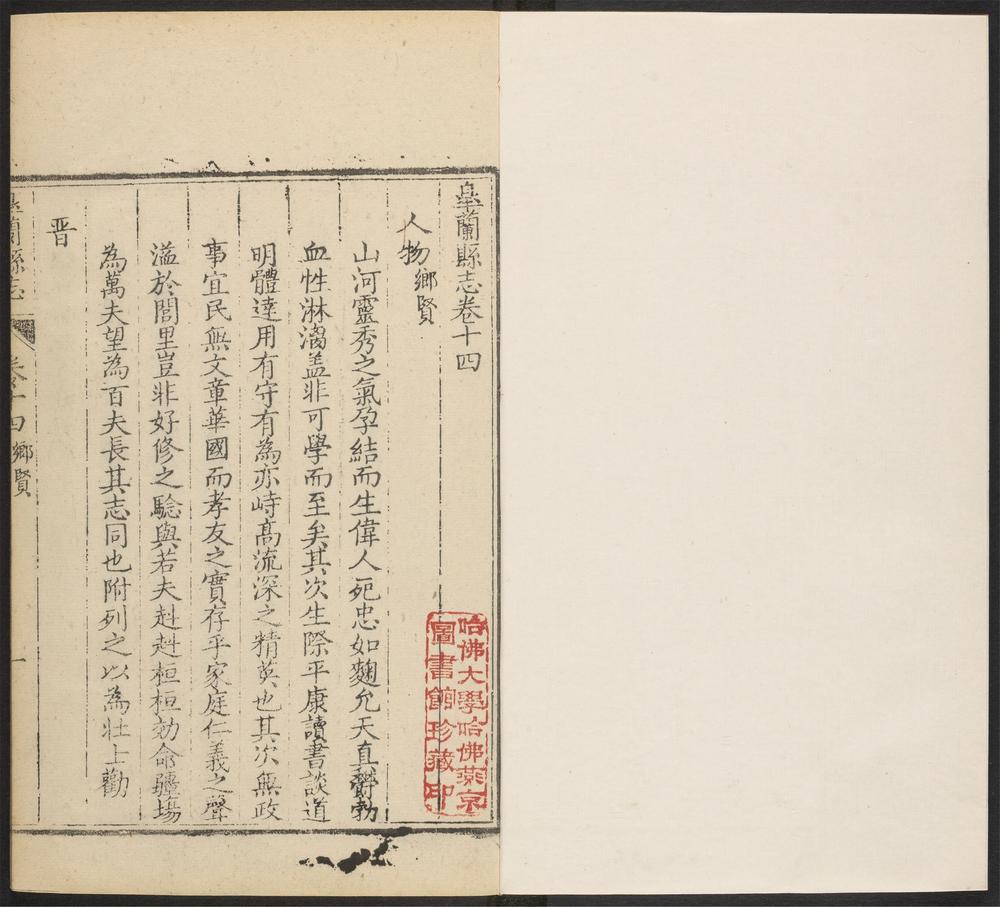 臯蘭縣志卷十四
人物鄉賢
山河靈秀之氣孕結而生偉人死忠如麴允天真欝勃
血性淋漓盖非可學而至矣其次生際平康讀書談道
明體達用有守有為亦峙高流深之精英也其次無政
事宜民無文章華國而孝友之實存乎家庭仁義之聲
溢於閭里豈非好修之騐與若夫赳赳桓桓効命疆場
為萬夫望為百夫長其志同也附列之以為壯士勸
晋
臯蘭縣志 卷十四 鄉賢 一
哈佛大學哈佛燕京
圖書館珍藏印